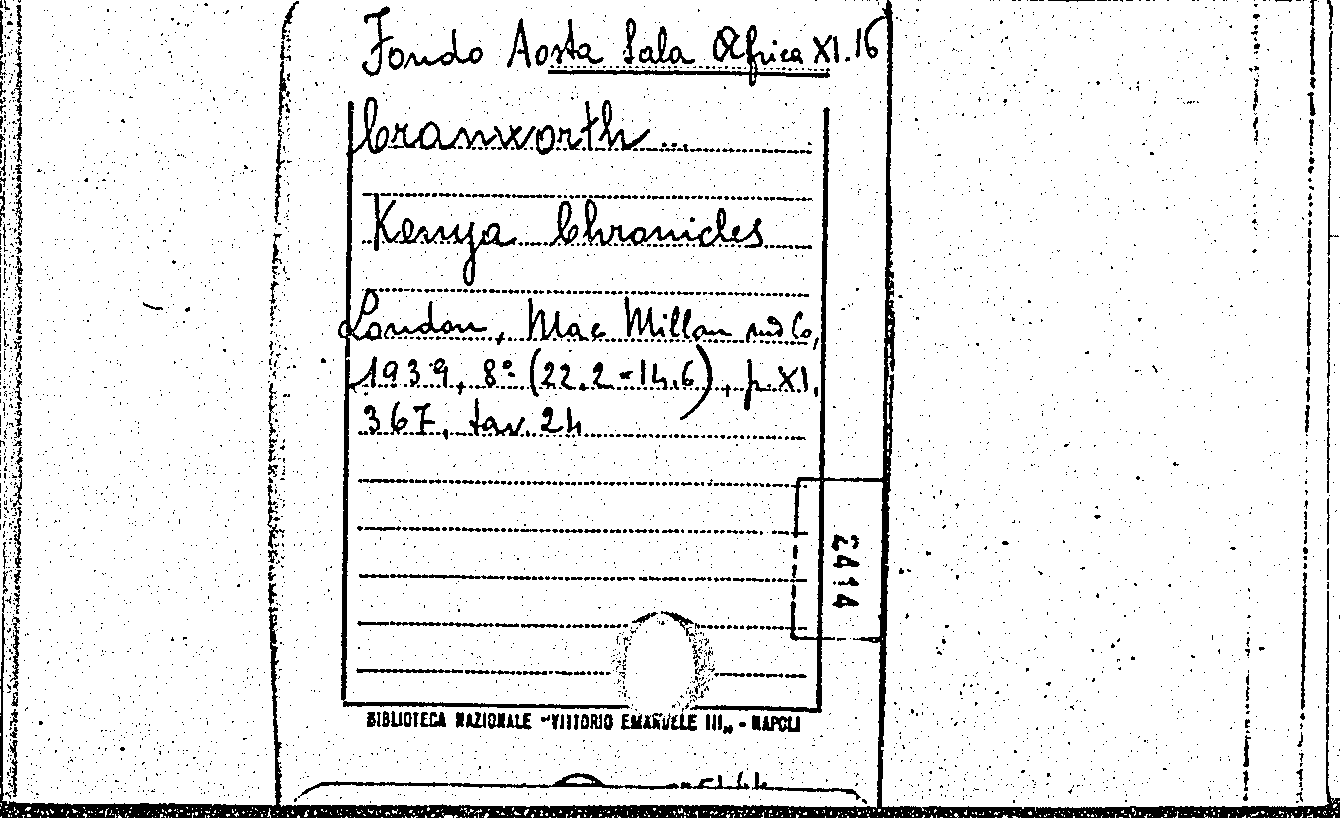 Fondo Aosta Sala Africa XI.16
Cranworth ...
Kenya Chronicles
London, Mac Millan and Co,
1939, 8° (22.2 × 14.6), p. XI,
367, tav. 24
2414
BIBLIOTECA NAZIONALE "VITTORIO EMANUELE III„ - NAPOLI